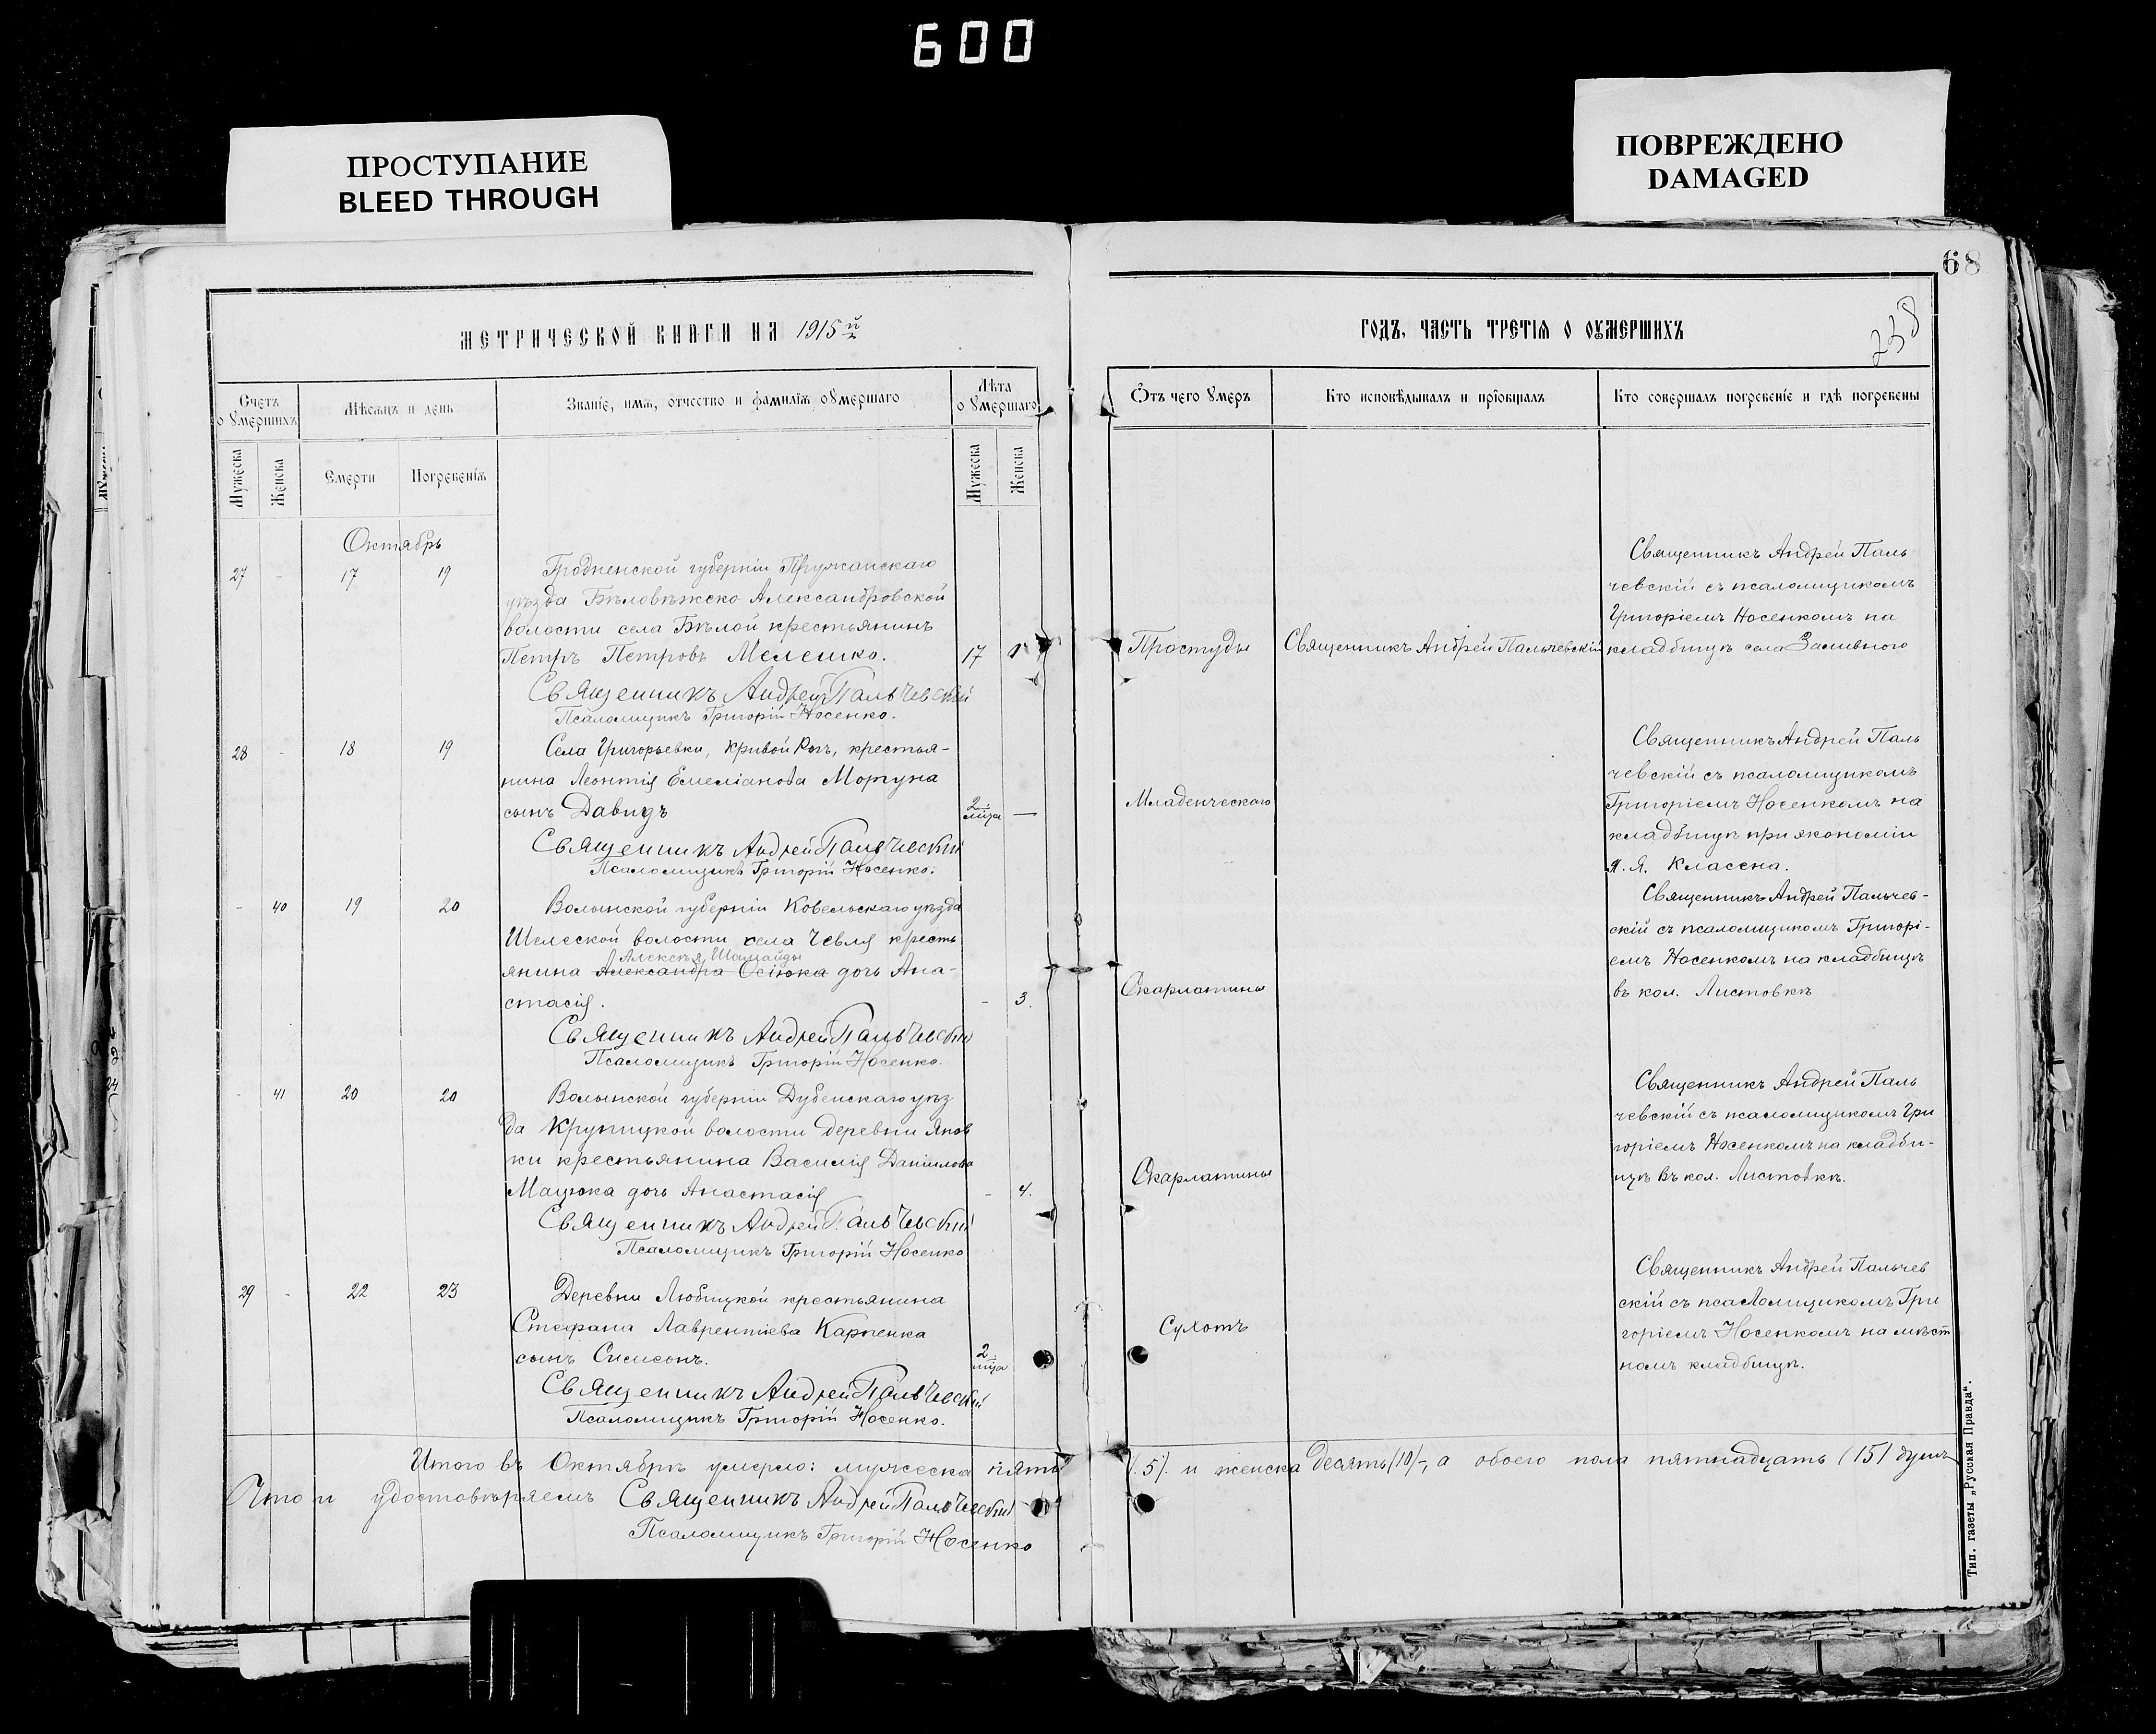 600
ПРОСТУПАНИЕ
BLEED THROUGH
ПОВРЕЖДЕНО
DAMAGED
68
МЕТРИЧЕСКОЙ КНИГИ НА 1915й
Счетъ оумершихъ
Мѣсяцъ и день
Званіе, имя, отчество и фамилія оумершаго
Лѣта оумершаго
Мужеска
Женска
Смерти
Погребенія
Мужеска
Женска
Октябрь
27 - 17 19
Гродненской губерніи Пружанскаго
уѣзда Бѣловѣжско-Александровской
волости села Бѣлой крестьянинъ
Петръ Петровъ Мелешко. 17
Священникъ Андрей Пальчевскій
Псаломщикъ Григорій Носенко.
28 - 18 19
Села Григорьевки, Кривой Рогъ, крестья-
нина Леонтія Емеліанова Моргуна
сынъ Давидъ 2 м-ца —
Священникъ Андрей Пальчевскій
Псаломщикъ Григорій Носенко.
- 40 19 20
Волынской губерніи Ковельскаго уѣзда
волости села крестъ
Алексѣя Шамайды
янина Александра Осіюка дочь Ана-
стасія. - 3.
Священникъ Андрей Пальчевскій
Псаломщикъ Григорій Носенко.
- 41 20 20
Волынской губерніи Дубенскаго уѣз
да Крупицкой волости деревни
ки крестьянина Василія Даніилова
Мацюка дочь Анастасія - 4.
Священникъ Андрей Пальчевскій
Псаломщикъ Григорій Носенко
29 - 22 23
Деревни Любицкой крестьянина
Стефана Лаврентіева Карпенка
сынъ Симеонъ. 2 м-ца
Священникъ Андрей Пальчевскій
Псаломщикъ Григорій Носенко.
Итого въ Октябрѣ умерло: мужеска пять
Что и удостовѣряемъ Священникъ Андрей Пальчевскій
Псаломщикъ Григорій Носенко
ГОДЪ, ЧАСТЬ ТРЕТІЯ О ОУМЕРШИХЪ
Отъ чего умеръ
Кто исповѣдывалъ и пріобщалъ
Кто совершалъ погребеніе и гдѣ погребены
Священникъ Андрей Паль
чевскій съ псаломщикомъ
Григоріемъ Носенкомъ на
Простуды Священникъ Андрей Пальчевскій кладбищѣ села Заливного
Священникъ Андрей Паль
чевскій съ псаломщикомъ
Младенческаго Григоріемъ Носенкомъ на
кладбищѣ при экономіи
Я. Классена.
Священникъ Андрей Пальчев-
скій съ псаломщикомъ Григорі-
емъ Носенкомъ на кладбищѣ
Скарлатины въ кол. Листовкѣ
Священникъ Андрей Паль
чевскій съ псаломщикомъ Гри
горіемъ Носенкомъ на кладби-
Скарлатины щѣ въ кол. Листовкѣ.
Священникъ Андрей Пальчев
скій съ псаломщикомъ Гри
Сухотъ горіемъ Носенкомъ на мѣст
номъ кладбищѣ.
/5/. и женска десять /10/-, а обоего пола пятнадцать /15/ душъ
Тип. газеты „Русская Правда“.